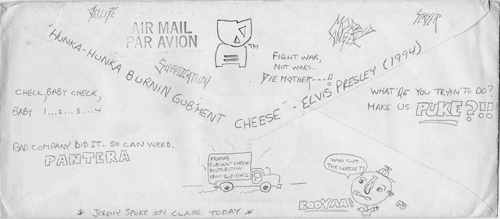 JELLITE
AIR MAIL
PAR AVION
TM
SLAYER
"HUNKA-HUNKA BURNIN GUB'MENT CHEESE" - ELVIS PRESLEY (1994)
SUFFOCATION
FIGHT WAR,
NOT WARS.
DIE MOTHER---!!
CHECK, BABY CHECK,
BABY 1...2...3...4
WHAT ARE YOU TRYIN TO DO?
MAKE US PUKE?!!
BAD COMPANY DID IT. SO CAN WEED.
PANTERA
FRANKS
GUB'MENT CHEESE
DISTRIBUTION
WHO CUT
THE CHEESE?!
BOOYAA!
* JEREMY SPOKE IN CLASS TODAY *